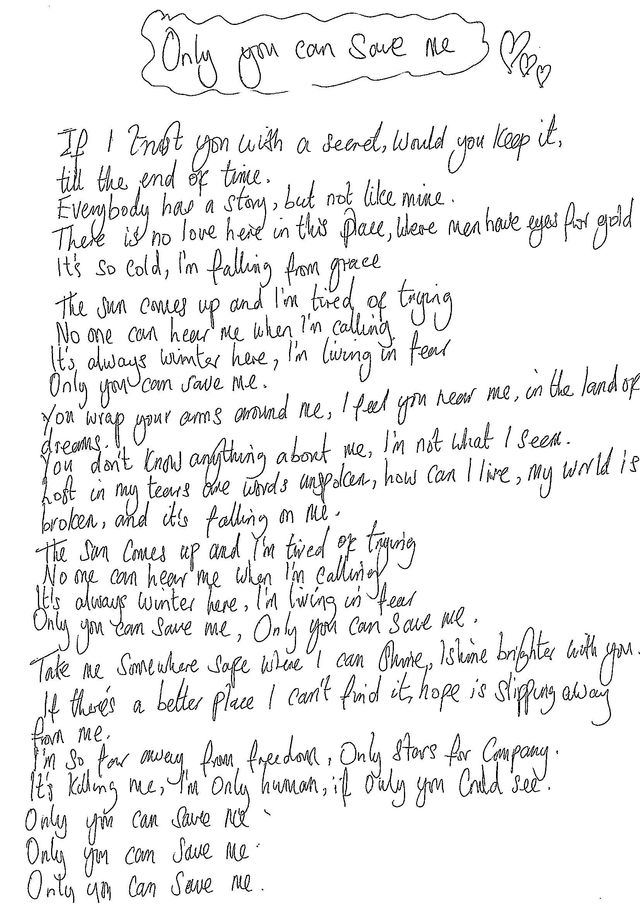 Only you can save me
If I trust you with a secret, would you keep it,
till the end of time.
Everybody has a story, but not like mine.
There is no love here in this place, were men have eyes for gold
It's so cold, I'm falling from grace
The sun comes up and I'm tired of trying
No one can hear me when I'm calling
It's always winter here, I'm living in fear
Only you can save me.
You wrap your arms around me, I feel you near me, in the land of
dreams.
You don't know anything about me, I'm not what I seem.
Lost in my tears are words unspoken, how can I live, my world is
broken, and it's falling on me.
The sun comes up and I'm tired of trying
No one can hear me when I'm calling
It's always winter here, I'm living in fear
Only you can save me, Only you can save me.
Take me somewhere safe where I can shine, I shine brighter with you.
If there's a better place I can't find it, hope is slipping away
from me.
I'm so far away from freedom, Only stars for company.
It's killing me, I'm only human, if only you could see.
Only you can save me
Only you can save me.
Only you can save me.